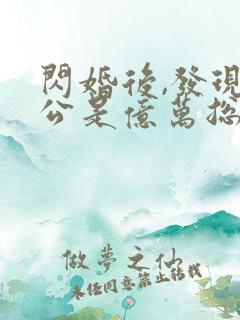 閃婚後,發現
公是億萬總
做夢之仙
未經同意禁止轉載